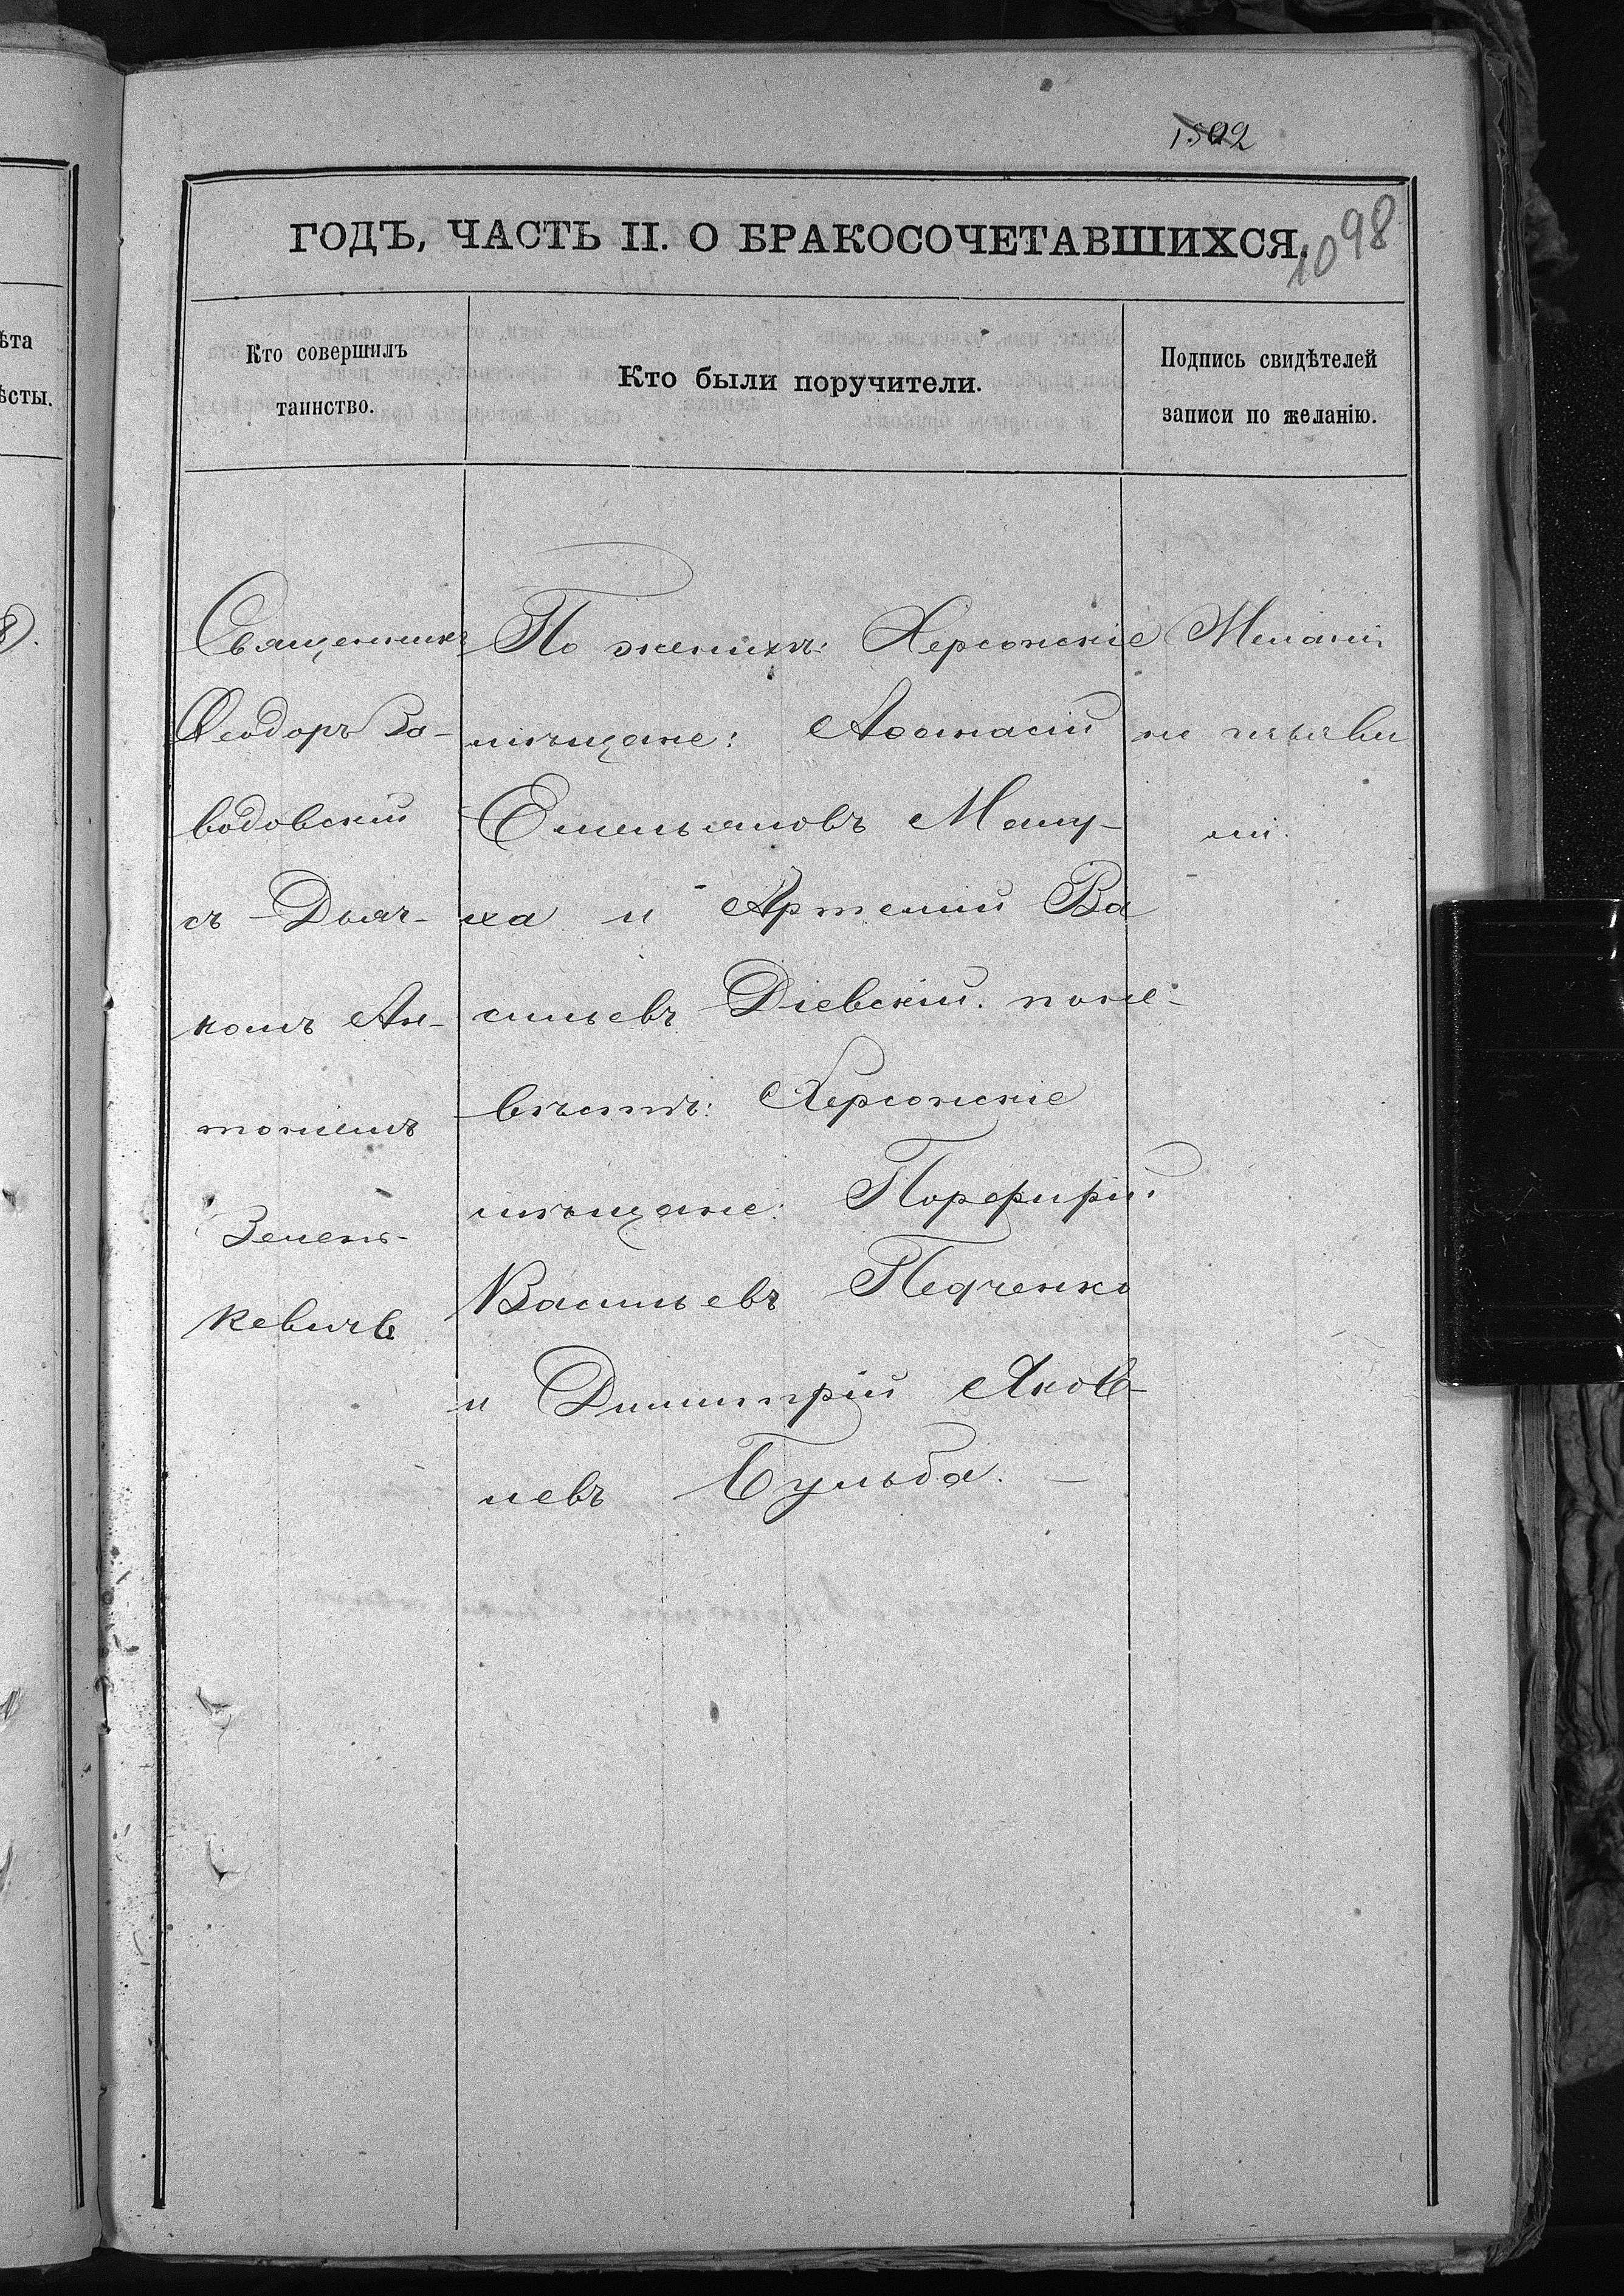 1502
ГОДЪ, ЧАСТЬ II. О БРАКОСОЧЕТАВШИХСЯ.
1098
Кто совершилъ
таинство.
Кто были поручители.
Подпись свидѣтелей
записи по желанію.
Священникъ
Ѳеодоръ За-
водовскій
съ Дьяч-
комъ Ан-
тоніемъ
Зелень-
кевичъ
По женихѣ: Херсонскіе
мѣщане: Аѳонасій
Емельяновъ Ману-
ха и Артемій Ва
сильевъ Діевскій. по не-
вѣстѣ: Херсонскіе
мѣщане: Порфирій
Васильевъ Педченко
и Димитрій Яков-
левъ Бульба. —
не изъяви
ли.
ѣта
ѣсты.